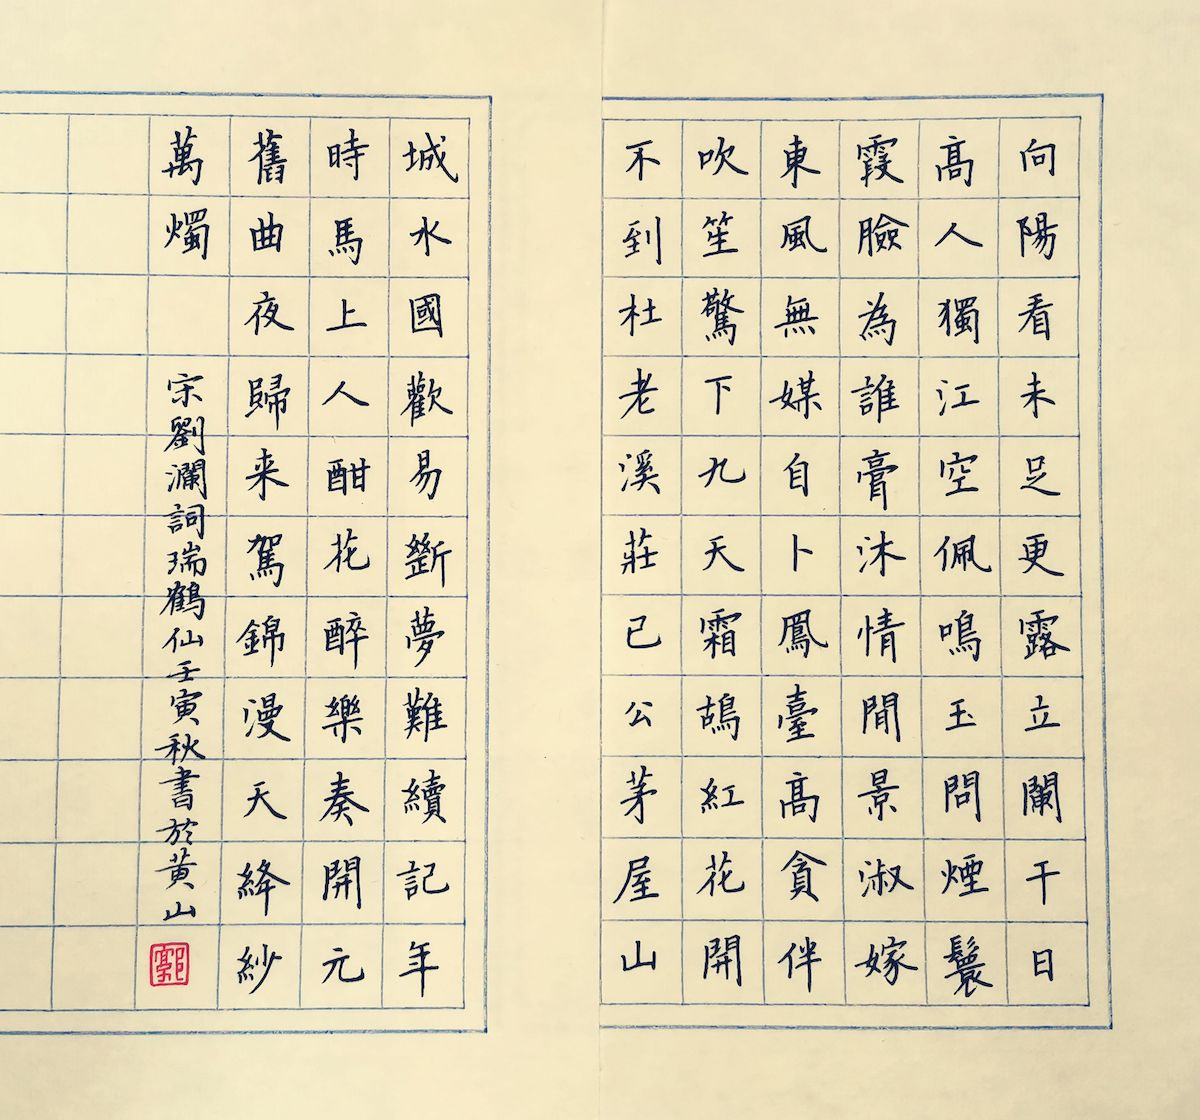 向陽看未足更露立闌干日
髙人獨江空佩鳴玉問煙鬟
霞臉為誰膏沐情閒景淑嫁
東風無媒自卜鳳臺髙貪伴
吹笙驚下九天霜鴣紅花開
不到杜老溪莊已公茅屋山
城水國歡易斷夢難續記年
時馬上人酣花醉樂奏開元
舊曲夜歸来駕錦漫天絳紗
萬燭
宋劉瀾詞瑞鶴仙壬寅秋書於黄山
郭